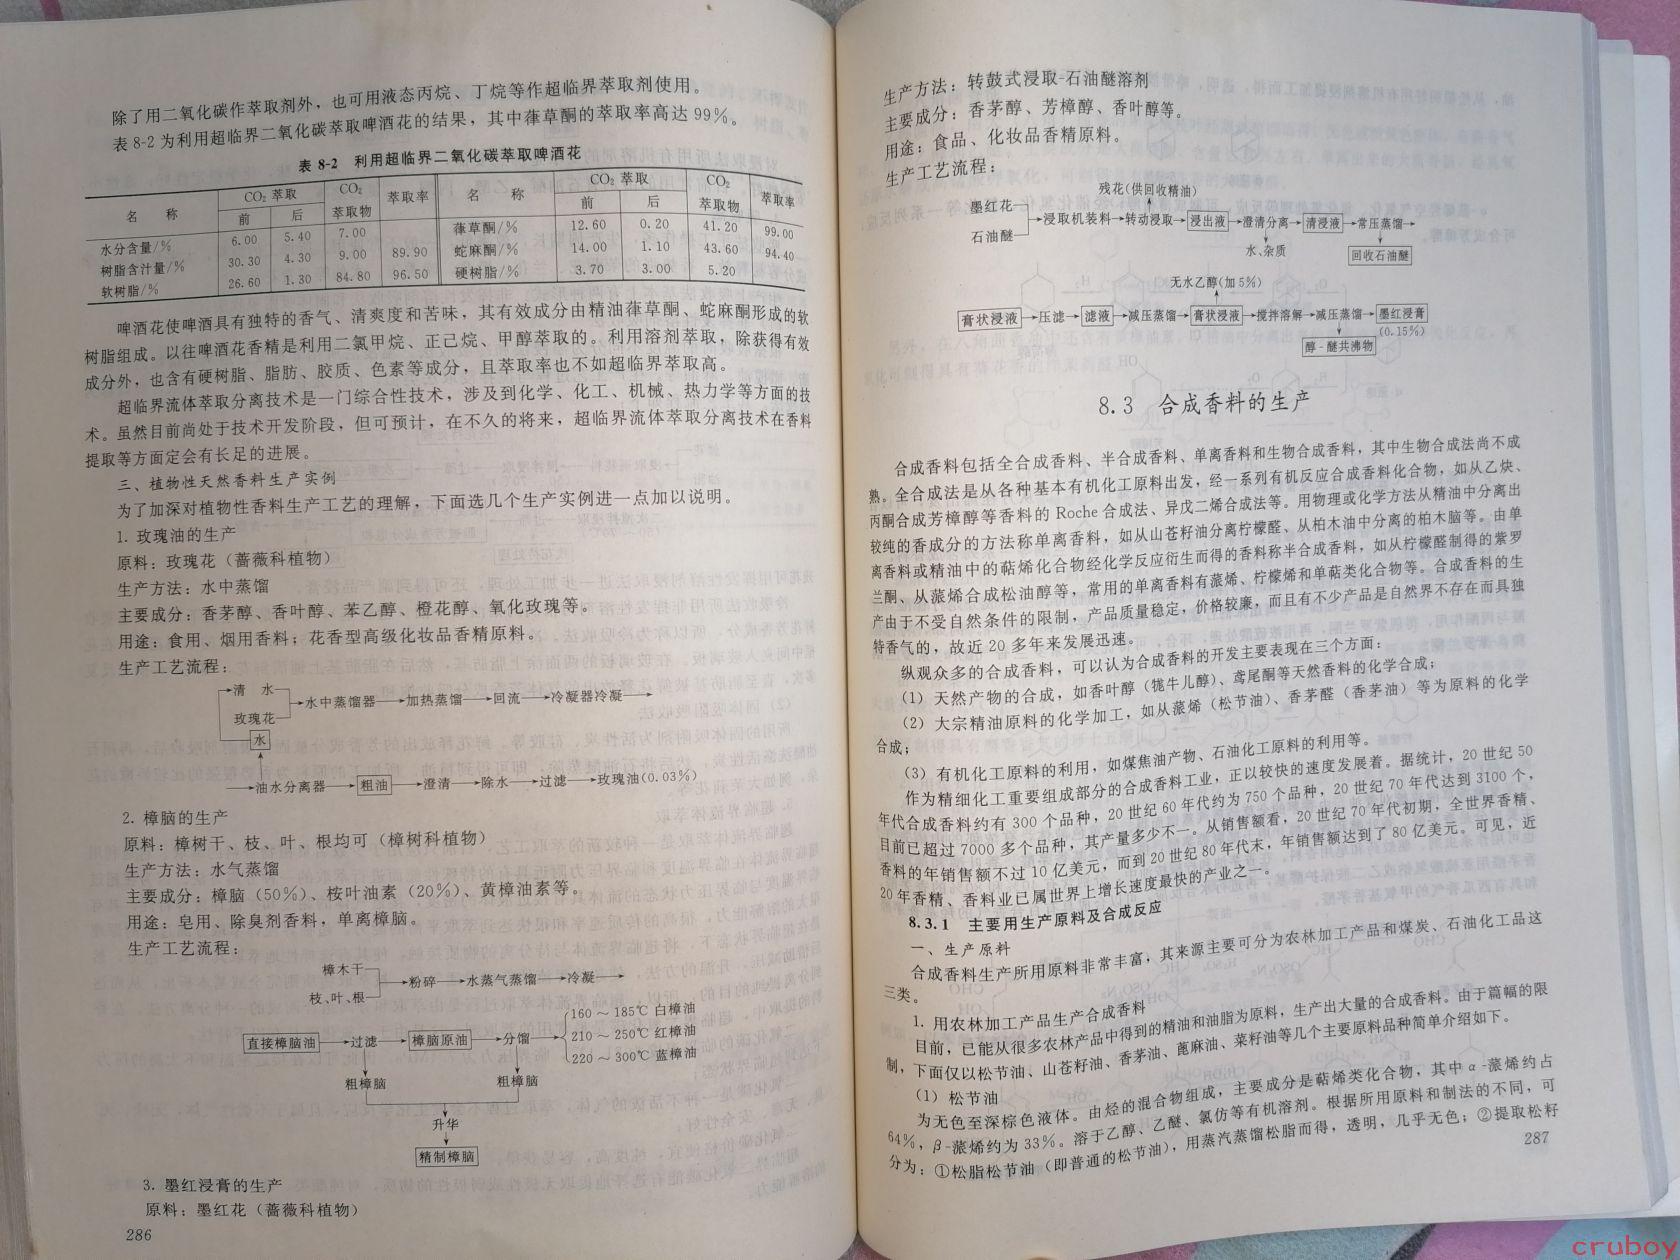 除了用二氧化碳作萃取剂外，也可用液态丙烷、丁烷等作超临界萃取剂使用。
表 8-2 为利用超临界二氧化碳萃取啤酒花的结果，其中葎草酮的萃取率高达 99%。
表 8-2 利用超临界二氧化碳萃取啤酒花
名 称 CO₂ 萃取 CO₂ 萃取物 萃取率 名 称 CO₂ 萃取 CO₂ 萃取物 萃取率
前 后 前 后
水分含量/% 6.00 5.40 7.00 葎草酮/% 12.60 0.20 41.20 99.00
树脂含汁量/% 30.30 4.30 9.00 89.90 蛇麻酮/% 14.00 1.10 43.60 94.40
软树脂/% 26.60 1.30 84.80 96.50 硬树脂/% 3.70 3.00 5.20
啤酒花使啤酒具有独特的香气、清爽度和苦味，其有效成分由精油葎草酮、蛇麻酮形成的软
树脂组成。以往啤酒花香精是利用二氯甲烷、正己烷、甲醇萃取的。利用溶剂萃取，除获得有效
成分外，也含有硬树脂、脂肪、胶质、色素等成分，且萃取率也不如超临界萃取高。
超临界流体萃取分离技术是一门综合性技术，涉及到化学、化工、机械、热力学等方面的技
术。虽然目前尚处于技术开发阶段，但可预计，在不久的将来，超临界流体萃取分离技术在香料
提取等方面定会有长足的进展。
三、植物性天然香料生产实例
为了加深对植物性香料生产工艺的理解，下面选几个生产实例进一点加以说明。
1. 玫瑰油的生产
原料：玫瑰花（蔷薇科植物）
生产方法：水中蒸馏
主要成分：香茅醇、香叶醇、苯乙醇、橙花醇、氧化玫瑰等。
用途：食用、烟用香料；花香型高级化妆品香精原料。
生产工艺流程：
清 水
玫瑰花
→水中蒸馏器→加热蒸馏→回流→冷凝器冷凝→
水
→油水分离器→粗油→澄清→除水→过滤→玫瑰油(0.03%)
2. 樟脑的生产
原料：樟树干、枝、叶、根均可（樟树科植物）
生产方法：水气蒸馏
主要成分：樟脑（50%）、桉叶油素（20%）、黄樟油素等。
用途：皂用、除臭剂香料，单离樟脑。
生产工艺流程：
樟木干
枝、叶、根
→粉碎→水蒸气蒸馏→冷凝→
160～185℃ 白樟油
直接樟脑油→过滤→樟脑原油→分馏→210～250℃ 红樟油
220～300℃ 蓝樟油
粗樟脑 粗樟脑
升华
精制樟脑
3. 墨红浸膏的生产
原料：墨红花（蔷薇科植物）
286
生产方法：转鼓式浸取-石油醚溶剂
主要成分：香茅醇、芳樟醇、香叶醇等。
用途：食品、化妆品香精原料。
生产工艺流程：
残花(供回收精油)
墨红花
石油醚
→浸取机装料→转动浸取→浸出液→澄清分离→清浸液→常压蒸馏→
水、杂质 回收石油醚
无水乙醇(加5%)
膏状浸液→压滤→滤液→减压蒸馏→膏状浸液→搅拌溶解→减压蒸馏→墨红浸膏
(0.15%)
醇-醚共沸物
8.3 合成香料的生产
合成香料包括全合成香料、半合成香料、单离香料和生物合成香料，其中生物合成法尚不成
熟。全合成法是从各种基本有机化工原料出发，经一系列有机反应合成香料化合物，如从乙炔、
丙酮合成芳樟醇等香料的 Roche 合成法、异戊二烯合成法等。用物理或化学方法从精油中分离出
较纯的香成分的方法称单离香料，如从山苍籽油分离柠檬醛、从柏木油中分离的柏木脑等。由单
离香料或精油中的萜烯化合物经化学反应衍生而得的香料称半合成香料，如从柠檬醛制得的紫罗
兰酮、从蒎烯合成松油醇等，常用的单离香料有蒎烯、柠檬烯和单萜类化合物等。合成香料的生
产由于不受自然条件的限制，产品质量稳定，价格较廉，而且有不少产品是自然界不存在而具独
特香气的，故近 20 多年来发展迅速。
纵观众多的合成香料，可以认为合成香料的开发主要表现在三个方面：
（1）天然产物的合成，如香叶醇（牻牛儿醇）、鸢尾酮等天然香料的化学合成；
（2）大宗精油原料的化学加工，如从蒎烯（松节油）、香茅醛（香茅油）等为原料的化学
合成；
（3）有机化工原料的利用，如煤焦油产物、石油化工原料的利用等。
作为精细化工重要组成部分的合成香料工业，正以较快的速度发展着。据统计，20 世纪 50
年代合成香料约有 300 个品种，20 世纪 60 年代约为 750 个品种，20 世纪 70 年代达到 3100 个，
目前已超过 7000 多个品种，其产量多少不一。从销售额看，20 世纪 70 年代初期，全世界香精、
香料的年销售额不过 10 亿美元，而到 20 世纪 80 年代末，年销售额达到了 80 亿美元。可见，近
20 年香精、香料业已属世界上增长速度最快的产业之一。
8.3.1 主要用生产原料及合成反应
一、生产原料
合成香料生产所用原料非常丰富，其来源主要可分为农林加工产品和煤炭、石油化工品这
三类。
1. 用农林加工产品生产合成香料
目前，已能从很多农林产品中得到的精油和油脂为原料，生产出大量的合成香料。由于篇幅的限
制，下面仅以松节油、山苍籽油、香茅油、蓖麻油、菜籽油等几个主要原料品种简单介绍如下。
（1）松节油
为无色至深棕色液体。由烃的混合物组成，主要成分是萜烯类化合物，其中 α-蒎烯约占
64%，β-蒎烯约为 33%。溶于乙醇、乙醚、氯仿等有机溶剂。根据所用原料和制法的不同，可
分为：①松脂松节油（即普通的松节油），用蒸汽蒸馏松脂而得，透明，几乎无色；②提取松籽
287
cruboy